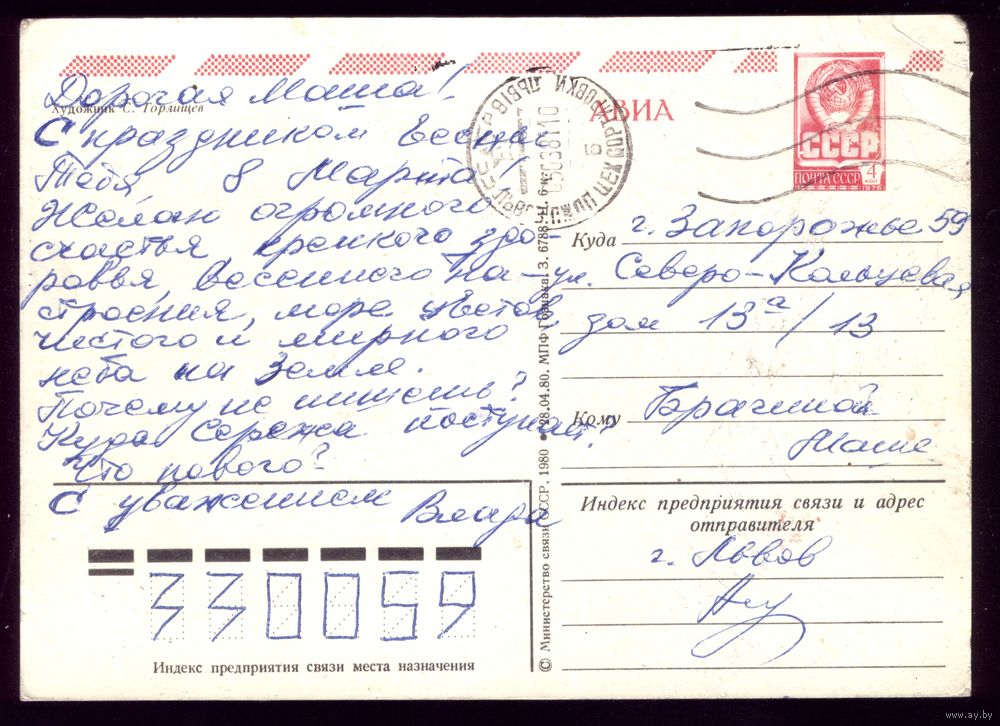 Дорогая Маша!
Художник С. Горлищев
С праздником Весны
Тебя 8 Марта!
Желаю огромного
счастья крепкого здо-
ровья, весеннего на-
строения, море цветов
чистого и мирного
неба на Земле.
Почему не пишешь?
Куда Сережа поступил?
Что нового?
С уважением Влада
330059
Индекс предприятия связи места назначения
© Министерство связи СССР, 1980 28.04.80. МПФ Гознака З. 6788
АВИА
СССР
ПОЧТА СССР 4 КОП
1978
Куда г. Запорожье 59
ул. Северо-Кольцевая
дом 13а/13
Кому Брачиной
Маше
Индекс предприятия связи и адрес
отправителя
г. Львов
www.ay.by